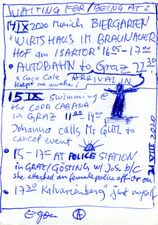 WAITING FOR/BEING AT 2
14 IX 2020 Munich BIERGARTEN
"WIRTSHAUS IM BRAUNAUER
HOF am ISARTOR" 16.05 - 17.00
• AUTOBAHN to Graz 22.30
a Coca Cola ARRIVAL IN
kept me awake!
15 IX Swimming at
the COPA CABANA
in GRAZ 11.00 - 14.00
Johanna calls Mr GUTL to
cancel event
15 - 17.00 AT POLICE STATION
in GRAZ/GÖSTING w/ Joh. b/c
she attacked an female police officer on
17.30 Kalvarienberg" just myself
Egon (A)